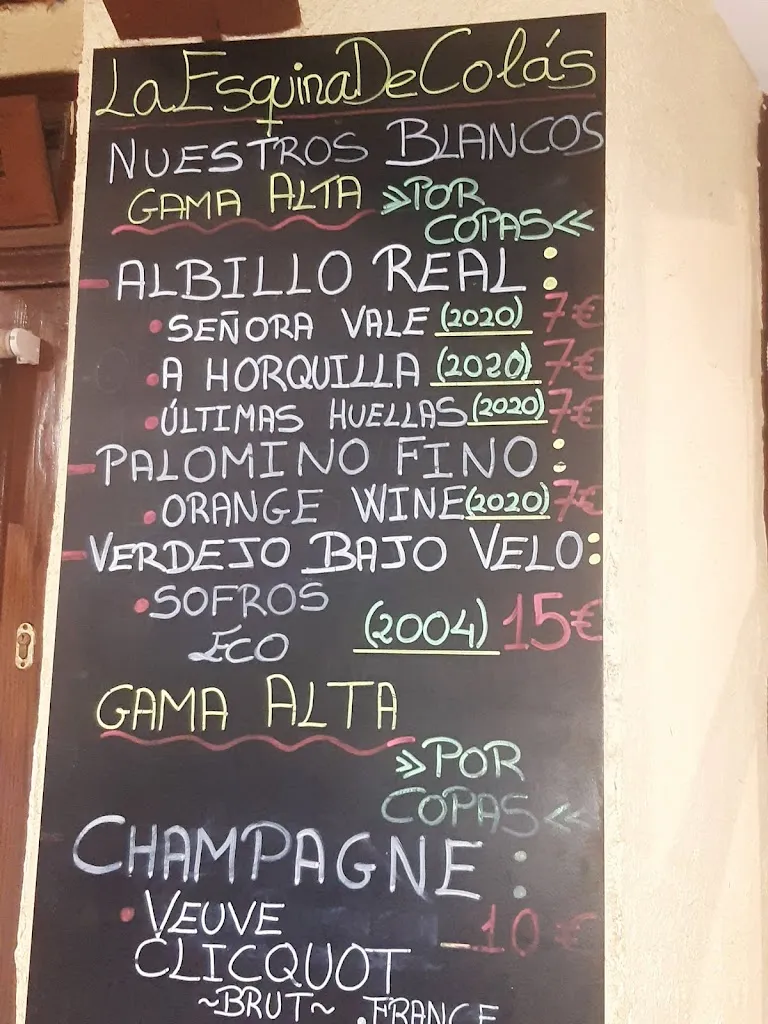 La Esquina De Colás
NUESTROS BLANCOS
GAMA ALTA >>POR
COPAS<<
- ALBILLO REAL:
• SEÑORA VALE (2020) 7€
• A HORQUILLA (2020) 7€
• ÚLTIMAS HUELLAS (2020) 7€
- PALOMINO FINO:
• ORANGE WINE (2020) 7€
- VERDEJO BAJO VELO:
• SOFROS
ECO (2004) 15€
GAMA ALTA
>>POR
COPAS<<
CHAMPAGNE:
• VEUVE
CLICQUOT 10€
~BRUT~ . FRANCE